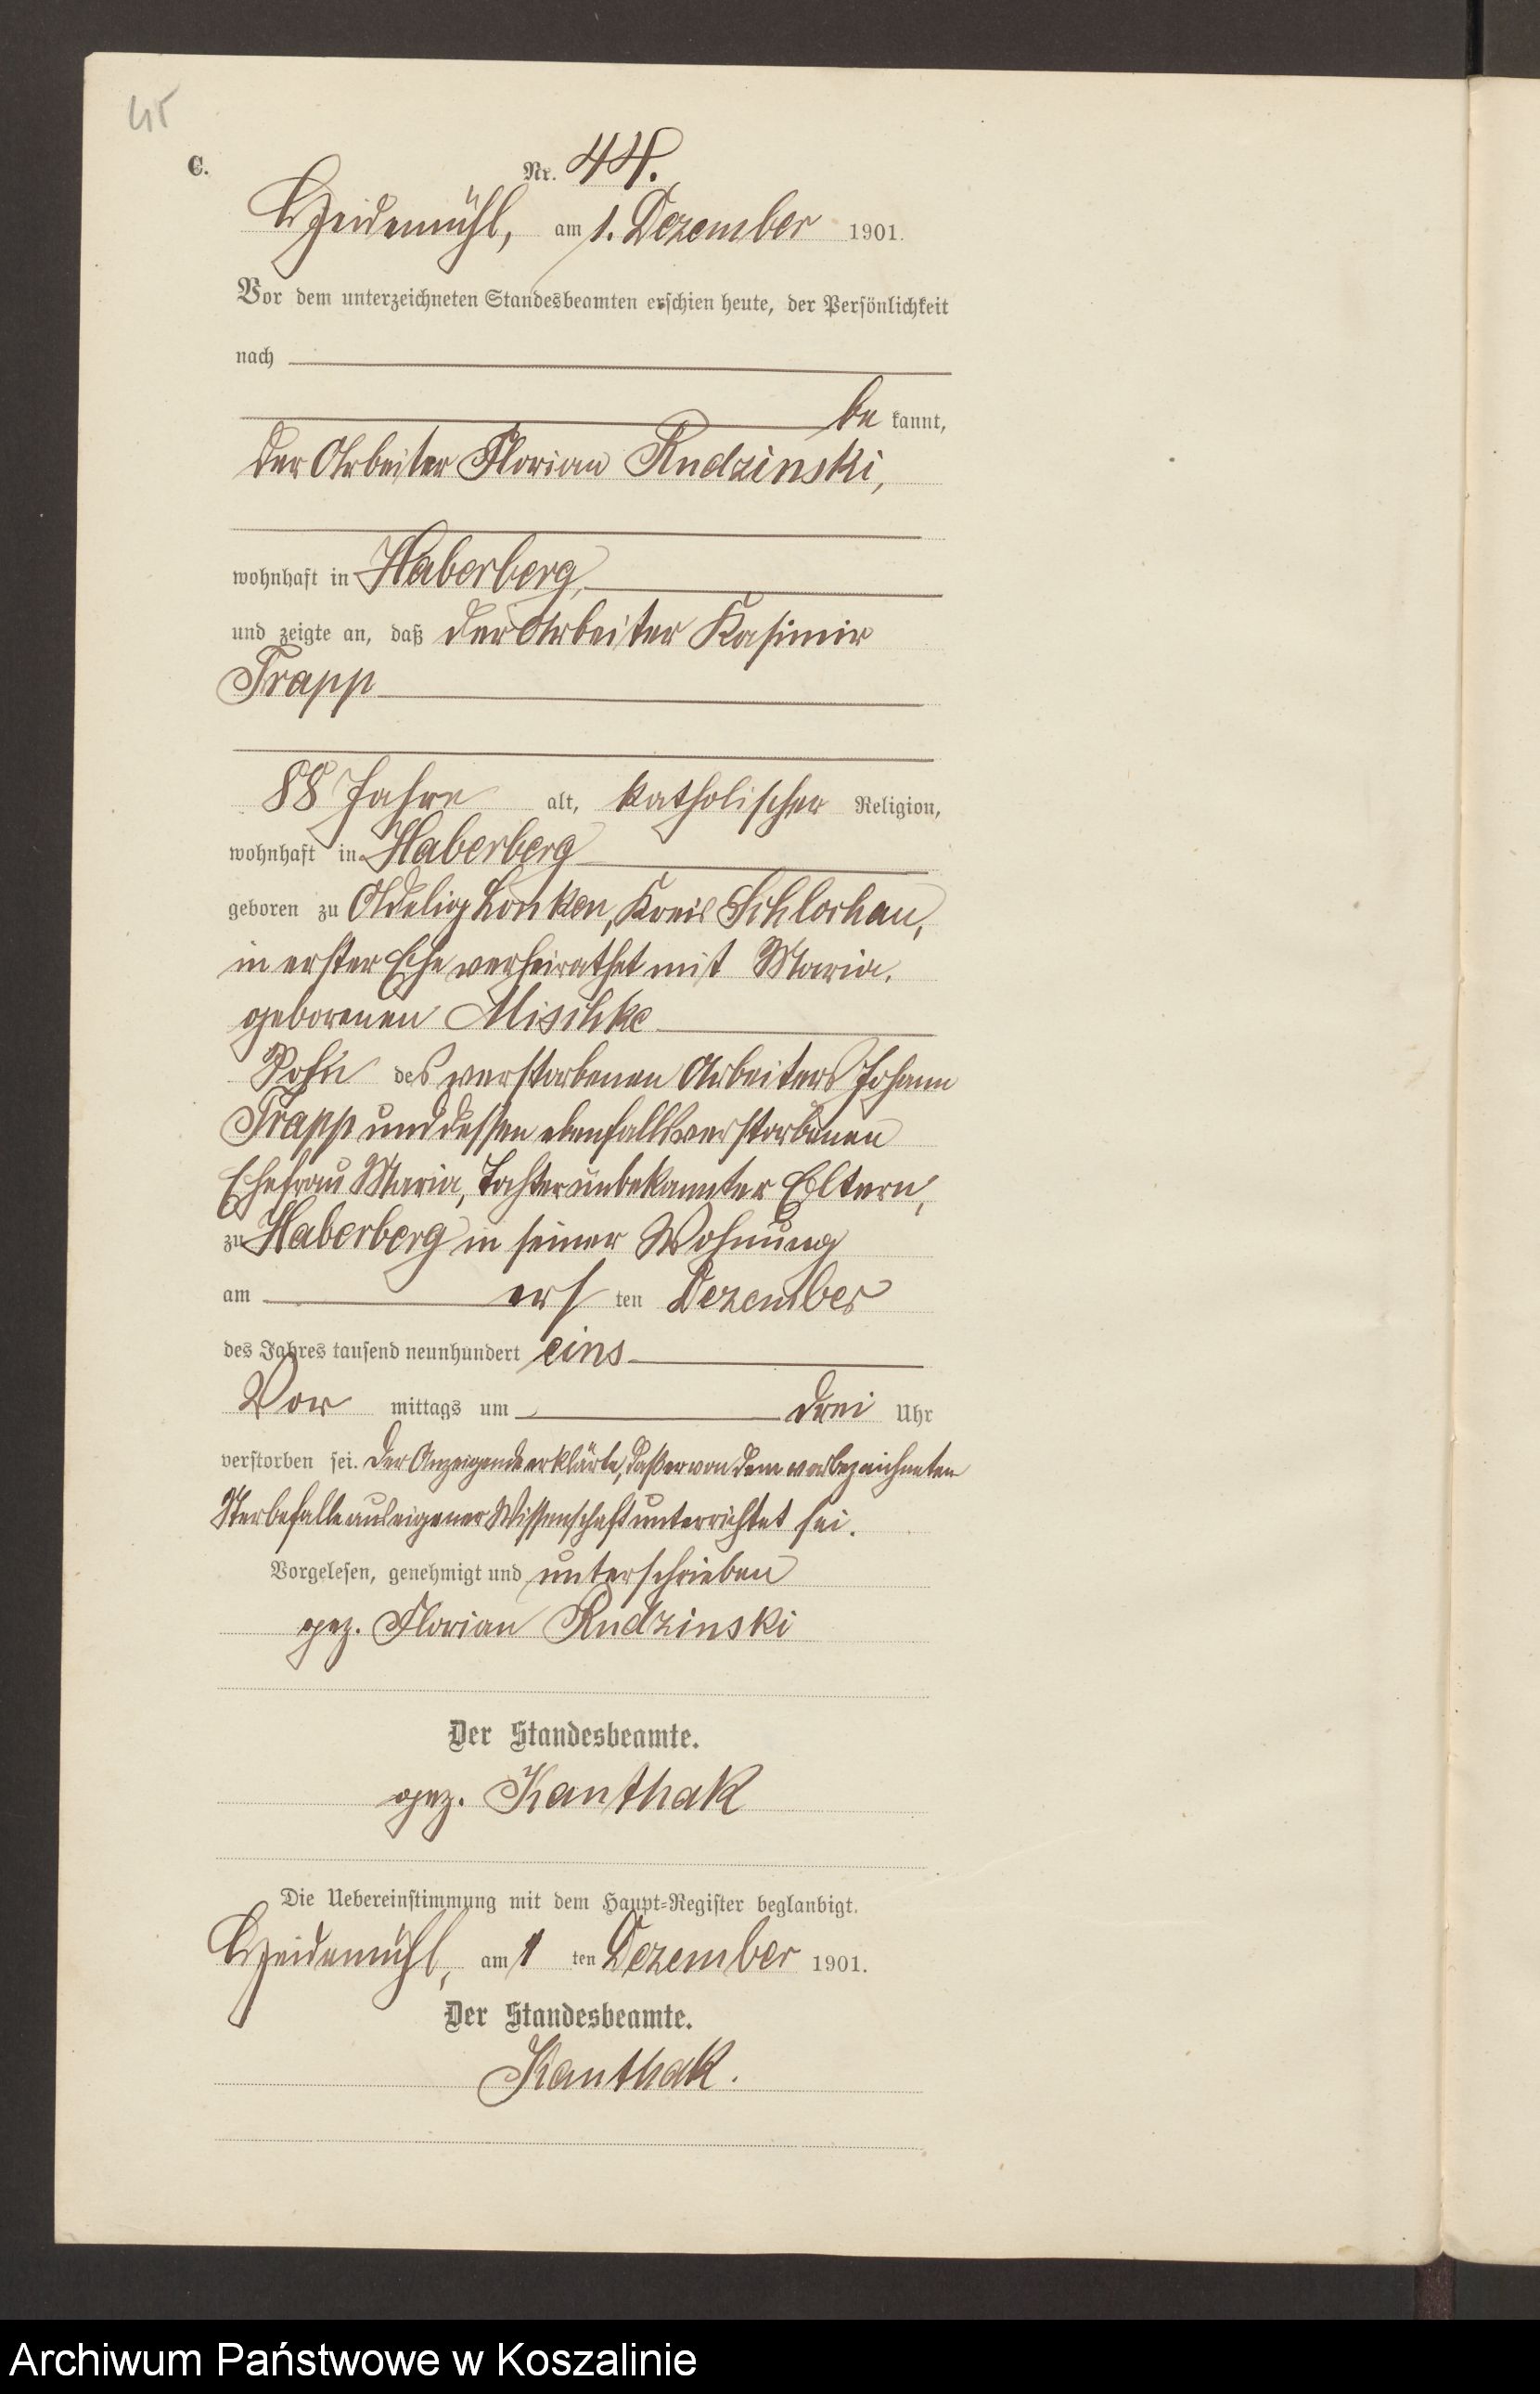 45
C.
Nr. 44.
Heidemühl, am 1. Dezember 1901.
Vor dem unterzeichneten Standesbeamten erschien heute, der Persönlichkeit
nach
be kannt,
der Arbeiter Florian Rudzinski,
wohnhaft in Haberberg,
und zeigte an, daß der Arbeiter Kasimir
Trapp
88 Jahre alt, katholischer Religion,
wohnhaft in Haberberg
geboren zu Adelig Lonken, Kreis Schlochau,
in erster Ehe verheirathet mit Maria,
geborenen Mischke
Sohn des verstorbenen Arbeiters Johann
Trapp und dessen ebenfalls verstorbenen
Ehefrau Maria, Tochter unbekannter Eltern,
zu Haberberg in seiner Wohnung
am ers ten Dezember
des Jahres tausend neunhundert eins
Vor mittags um drei Uhr
verstorben sei. Der Anzeigende erklärte, daß er von dem vorbezeichneten
Sterbefalle aus eigener Wissenschaft unterrichtet sei.
Vorgelesen, genehmigt und unterschrieben
gez. Florian Rudzinski
Der Standesbeamte.
gez. Kanthak
Die Uebereinstimmung mit dem Haupt-Register beglaubigt.
Heidemühl, am 1 ten Dezember 1901.
Der Standesbeamte.
Kanthak.
Archiwum Państwowe w Koszalinie